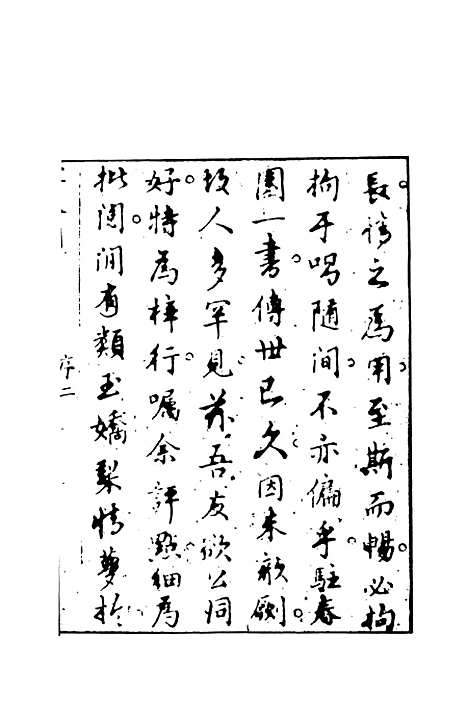 長。情之爲用。至斯而暢。必拘
拘乎唱隨間。不亦偏乎。駐春
園一書。傳世已久。因未剞劂。
故人多罕見。茲吾友欲公同
好。特爲梓行。囑余評點。細爲
批閱。間有類玉嬌梨情夢柝
序二